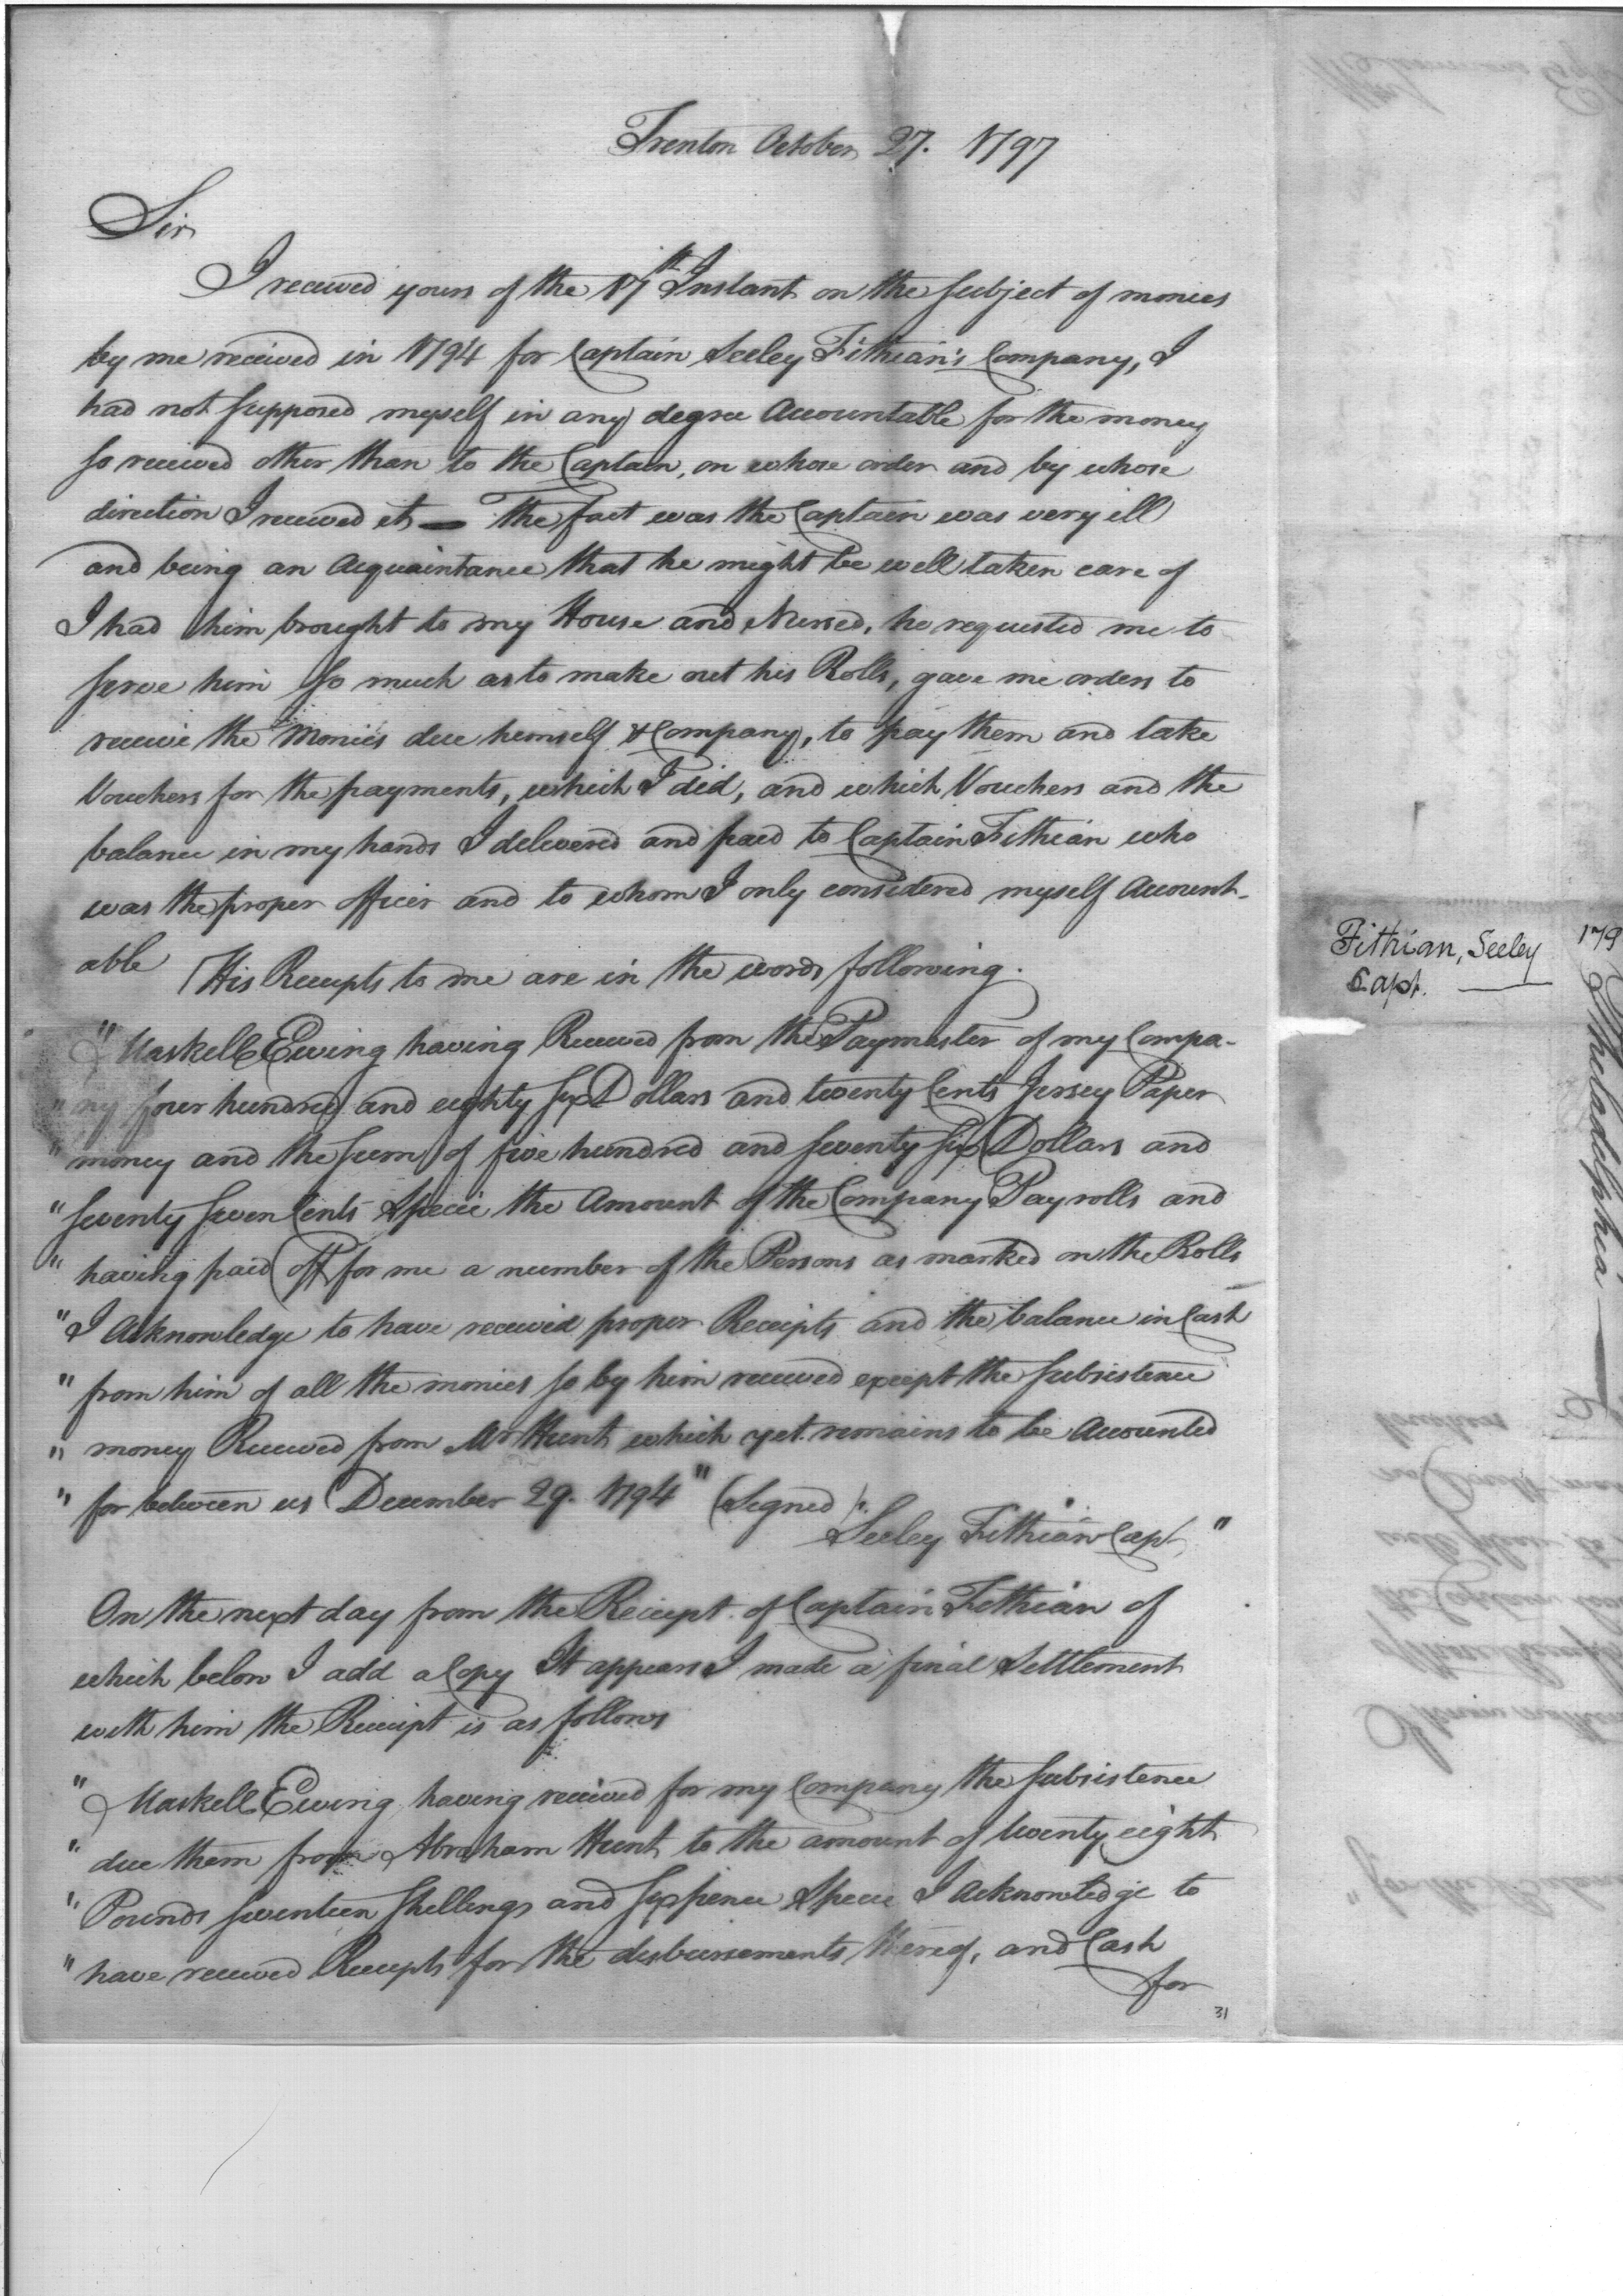 Trenton October 27. 1797
Sir
I received yours of the 17th Instant on the subject of monies
by me received in 1794 for Captain Seeley Fithian's Company, I
had not supposed myself in any degree Accountable for the money
so received other than to the Captain, on whose order and by whose
direction I received it — The fact was the Captain was very ill
and being an Acquaintance that he might be well taken care of
I had him brought to my House and Nursed, he requested me to
serve him so much as to make out his Rolls, gave me orders to
receive the Monies due himself & Company, to pay them and take
Vouchers for the payments, which I did, and which Vouchers and the
balance in my hands I delivered and paid to Captain Fithian who
was the proper officer and to whom I only considered myself Account-
able His Receipts to me are in the words following.
"Maskell Ewing having Received from the Paymaster of my Compa-
"ny four hundred and eighty six Dollars and twenty Cents Jersey Paper
"money and the sum of five hundred and seventy six Dollars and
"seventy seven Cents Specie the Amount of the Company Payrolls and
"having paid off for me a number of the Persons as marked on the Rolls
"I Acknowledge to have received proper Receipts and the balance in Cash
"from him of all the monies so by him received except the subsistence
"money Received from Mr Hunt which yet remains to be Accounted
"for between us December 29. 1794" (Signed)
Seeley Fithian Capt "
On the next day from the Receipt of Captain Fithian of
which below I add a Copy It appears I made a final Settlement
with him the Receipt is as follows
"Maskell Ewing having received for my Company the subsistence
"due them from Abraham Hunt to the amount of twenty eight
"Pounds seventeen shillings and sixpence Specie I Acknowledge to
"have received Receipts for the disbursements thereof, and Cash
for
31
Fithian, Seeley
Capt.
179
Philadelphia